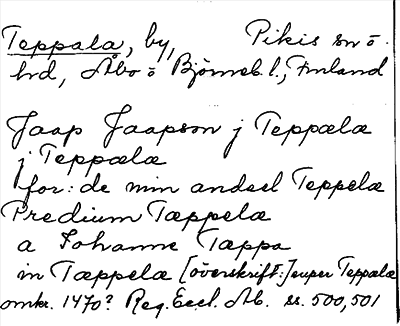 Teppala, by, Pikis sn o.
hd, Åbo o Björneb. l., Finland
Jaap Jaapson j Teppælæ
j Teppælæ
for: de min andeel Teppelæ
Predium Tæppelæ
a Johanne Tæppa
in Tæppelæ [överskrift:] super Teppælæ
omkr. 1470? Reg. Eccl. Ab. ss. 500, 501